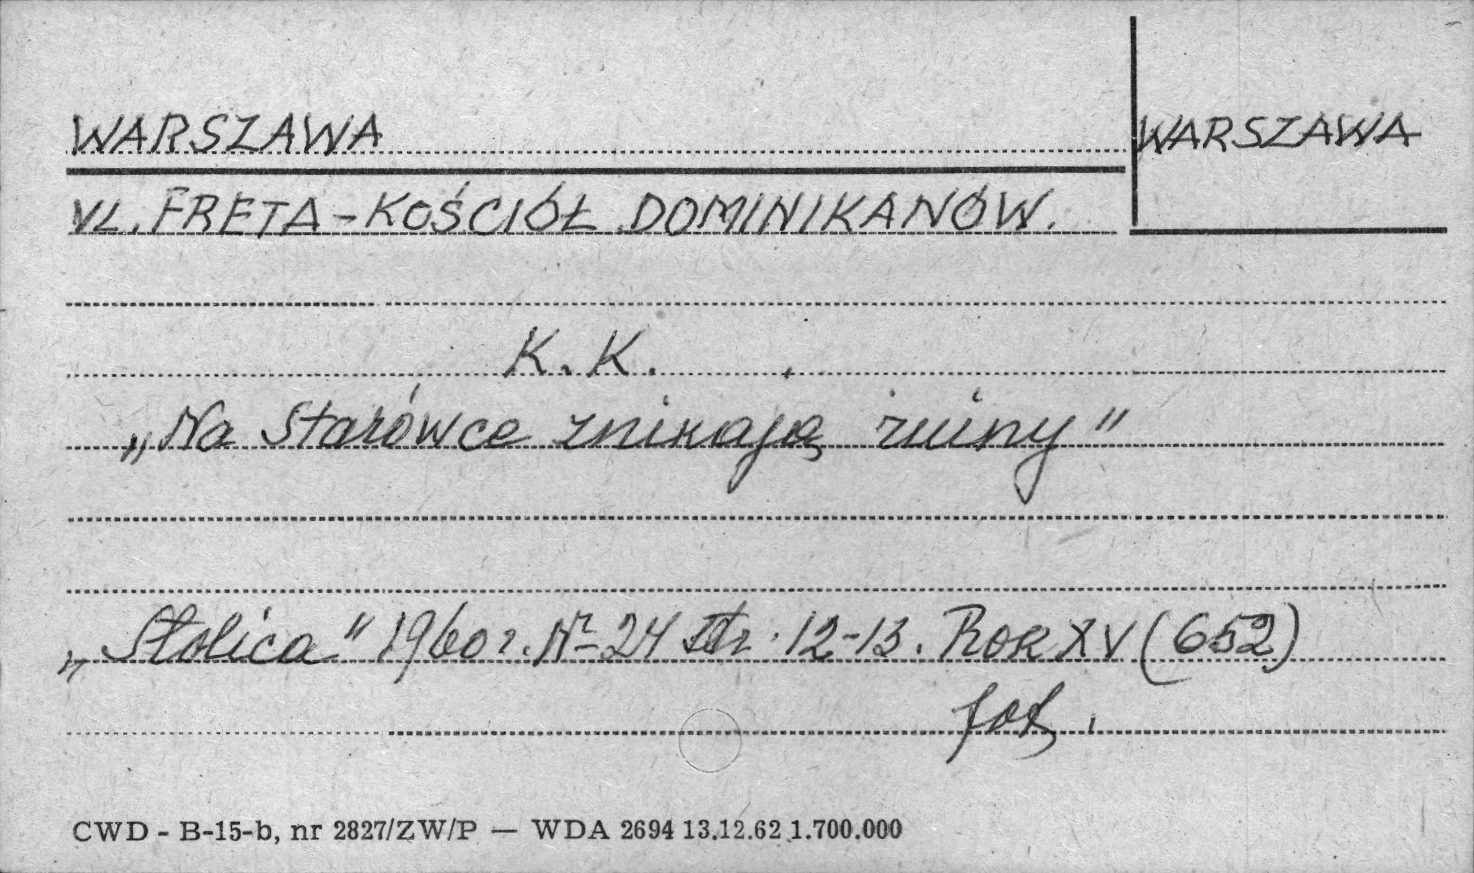 WARSZAWA
WARSZAWA
UL. FRETA - KOŚCIÓŁ DOMINIKANÓW.
K. K.
„Na Starówce znikają ruiny"
„Stolica" 1960 r. Nr 24 str. 12-13. Rok XV (652)
fot.
CWD - B-15-b, nr 2827/ZW/P — WDA 2694 13.12.62 1.700.000